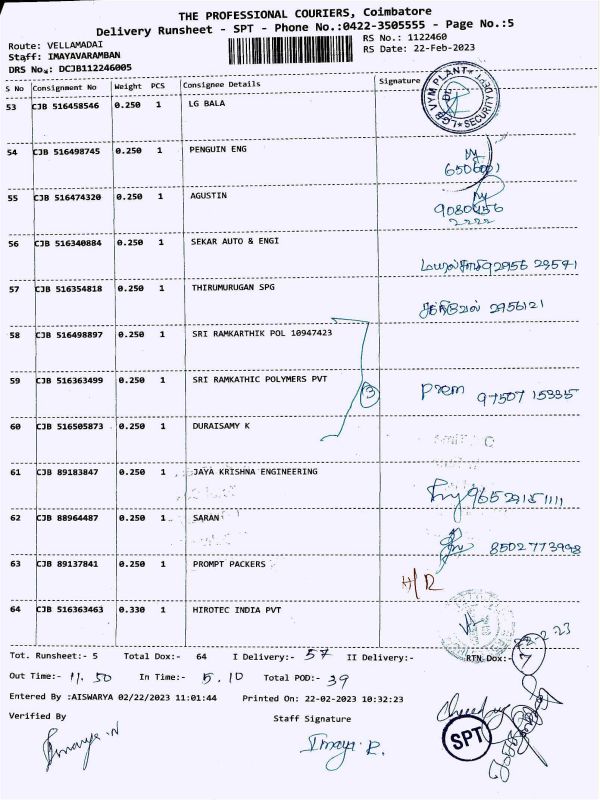 THE PROFESSIONAL COURIERS, Coimbatore
Delivery Runsheet - SPT - Phone No.:0422-3505555 - Page No.:5
Route: VELLAMADAI
RS No.: 1122460
Staff: IMAYAVARAMBAN
RS Date: 22-Feb-2023
DRS No.: DCJB112246005
S No Consignment No Weight PCS Consignee Details Signature
53 CJB 516458546 0.250 1 LG BALA
LGB VYM PLANT SECURITY DEPT
54 CJB 516498745 0.250 1 PENGUIN ENG
6506001
55 CJB 516474320 0.250 1 AGUSTIN
9080456
2222
56 CJB 516340884 0.250 1 SEKAR AUTO & ENGI
92956 29541
57 CJB 516354818 0.250 1 THIRUMURUGAN SPG
2956121
58 CJB 516498897 0.250 1 SRI RAMKARTHIK POL 10947423
59 CJB 516363499 0.250 1 SRI RAMKATHIC POLYMERS PVT
3 Prem 97507 15335
60 CJB 516505873 0.250 1 DURAISAMY K
61 CJB 89183847 0.250 1 JAYA KRISHNA ENGINEERING
62 CJB 88964487 0.250 1 SARAN
8502773998
63 CJB 89137841 0.250 1 PROMPT PACKERS
H/R
64 CJB 516363463 0.330 1 HIROTEC INDIA PVT
22-2-23
Tot. Runsheet:- 5 Total Dox:- 64 I Delivery:- 57 II Delivery:- RTN Dox:- 7
Out Time:- 11.50 In Time:- 5.10 Total POD:- 39
Entered By :AISWARYA 02/22/2023 11:01:44 Printed On: 22-02-2023 10:32:23
Verified By Staff Signature
Imaya.N Imaya R.
SPT